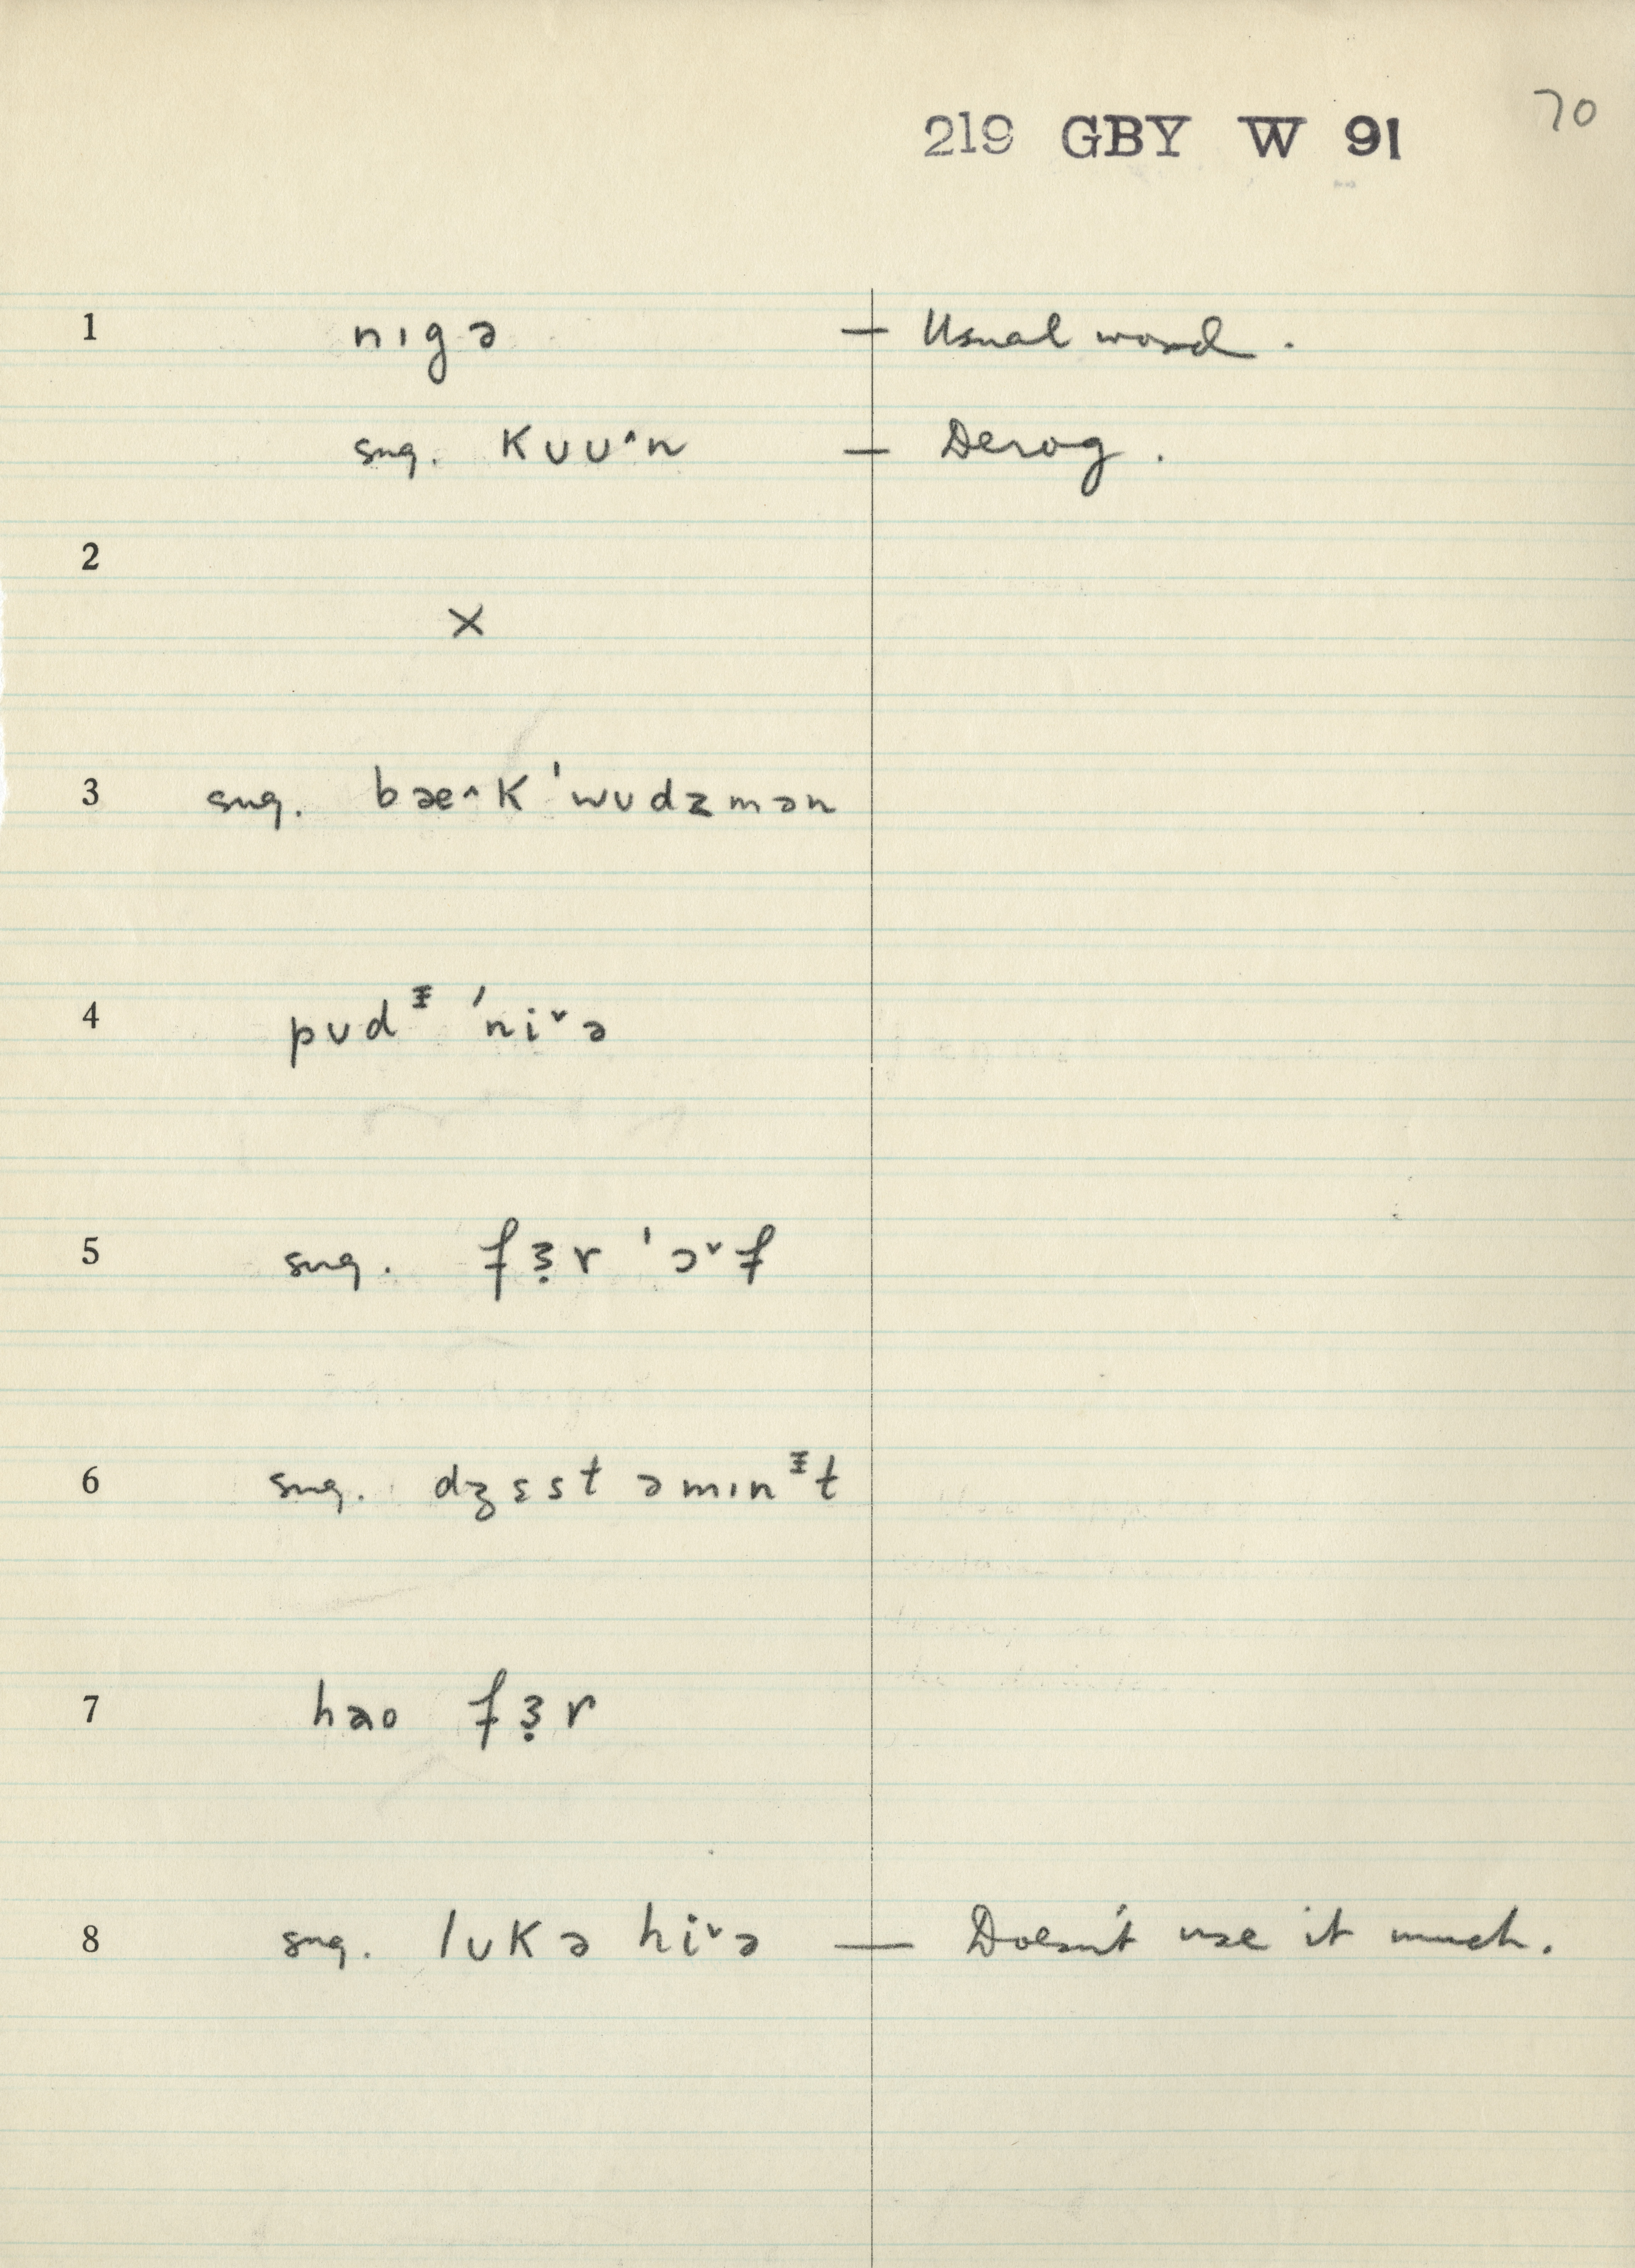 70
219 GBY W 91
1 nɪgə — Usual word.
sug. kuu^n — Derog.
2
×
3 sug. bæ^k ˈwudzmən
4 pud ᵻ ˈni˅ə
5 sug. fɜ̣r ˈɔ˅f
6 sug. dʒɛst əmɪnᵻt
7 hao fɜ̣r
8 sug. lukə hi˅ə — Doesn't use it much.